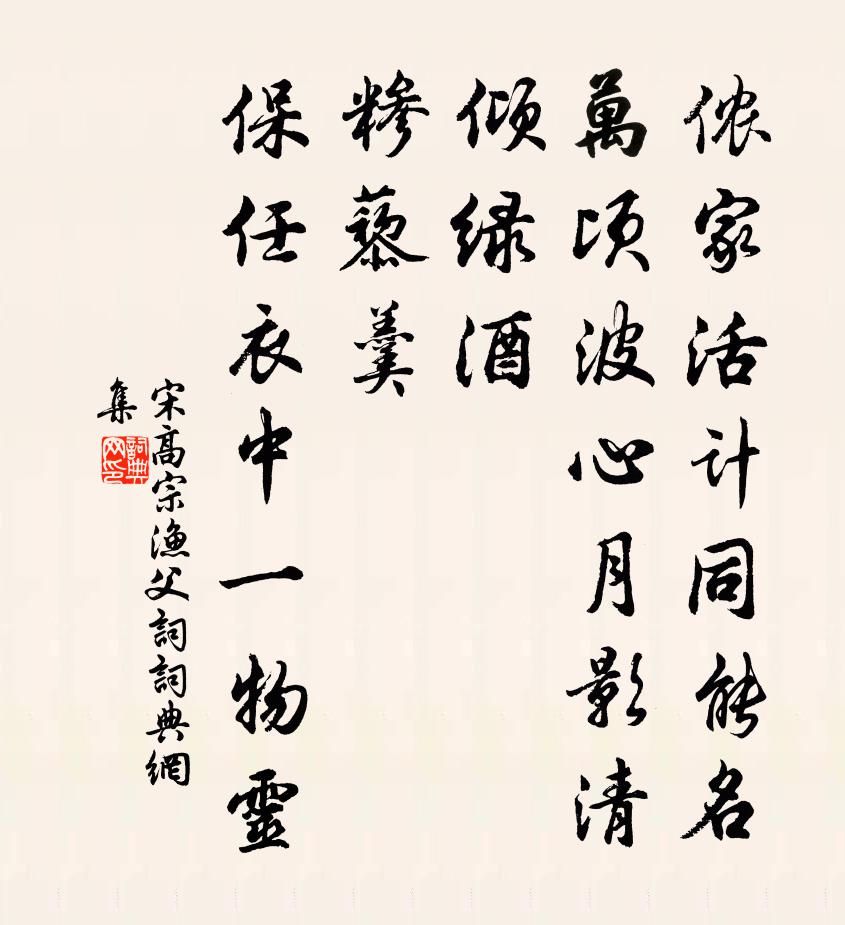 侬家活计同能名
萬顷波心月影清
倾绿酒
糁藜羹
保任衣中一物靈
宋髙宗漁父詞詞典網
集
詞典网印